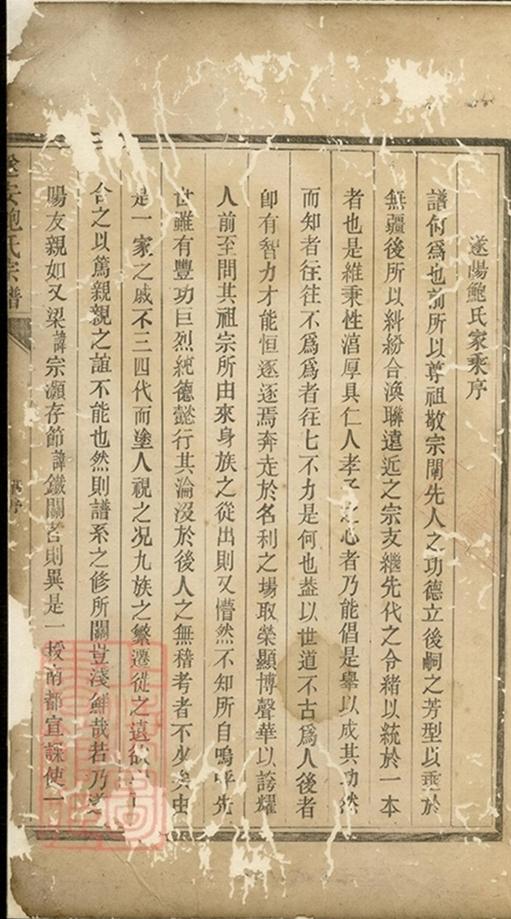 遂陽鮑氏家乘序
譜何爲也前所以尊祖敬宗闡先人之功德立後嗣之芳型以垂於
無疆後所以糾紛合渙聯遠近之宗支繼先代之令緒以統於一本
者也是維秉性湻厚具仁人孝子之心者乃能倡是舉以成其功然
而知者往往不爲爲者往七不力是何也葢以世道不古爲人後者
卽有智力才能恒逐逐焉奔走於名利之場取榮顯博聲華以誇耀
人前至問其祖宗所由來身族之從出則又懵然不知所自嗚呼先
世雖有豐功巨烈純德懿行其淪沒於後人之無稽考者不少矣由
是一家之戚不三四代而塗人視之况九族之繁遷徙之遠欲
合之以篤親親之誼不能也然則譜系之修所關豈淺鮮哉若乃
陽友親如又梁諱宗灝存節諱鐵關者則異是一授南都宣課使一
遂安鮑氏宗譜
序